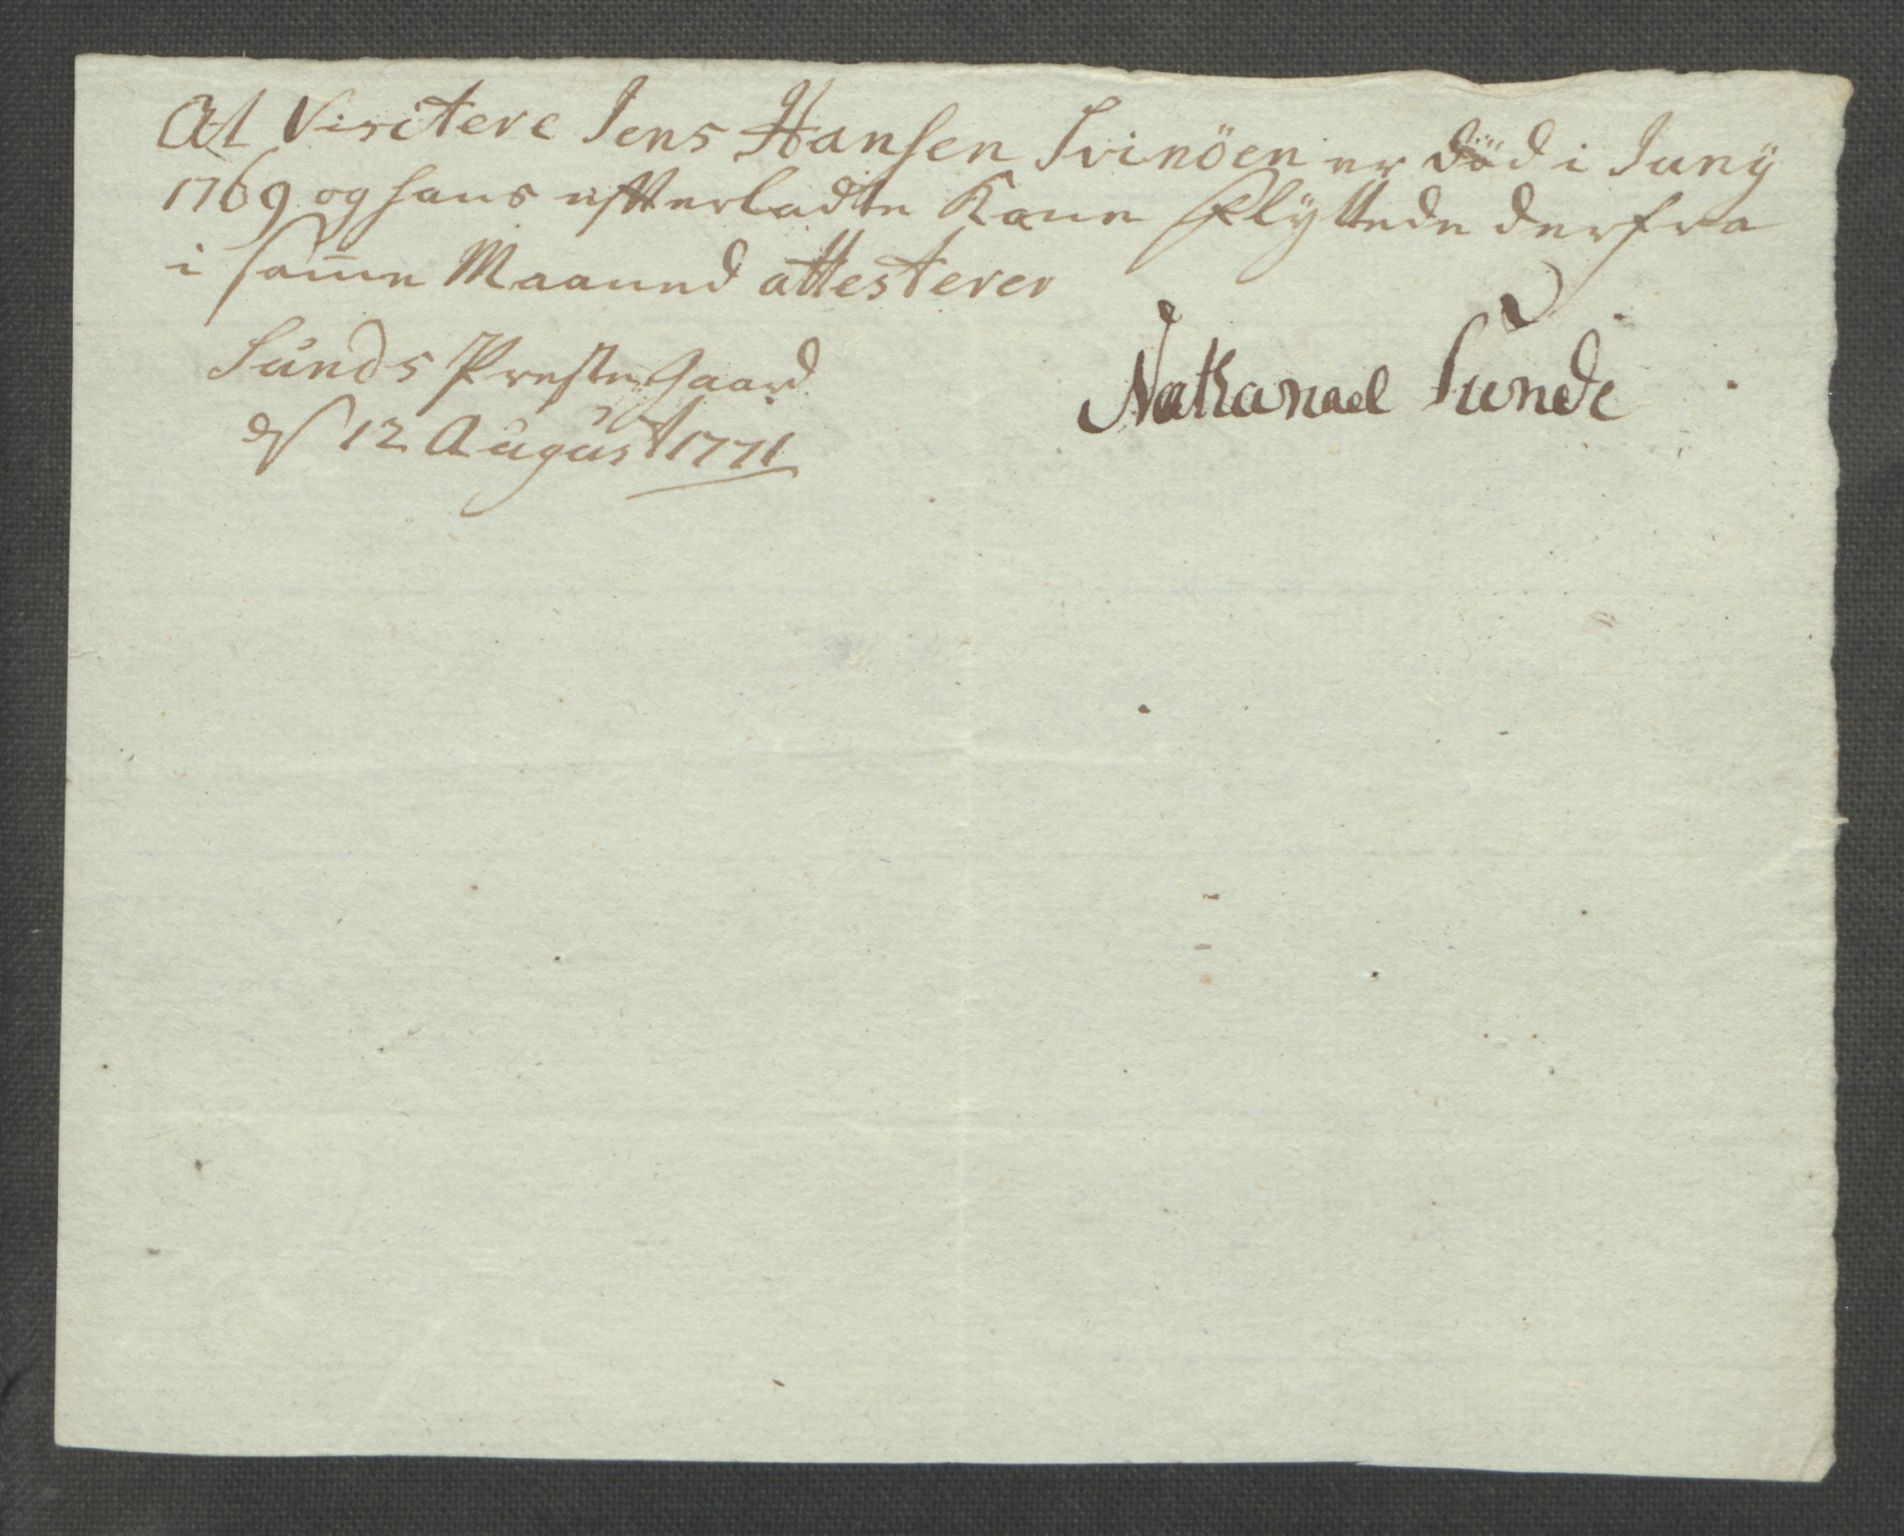 At Visitere Jens Hansen Svinöen er död i Juny
1769 og hans effterladte Kone flÿttede derfra
i samme Maaned attesterer
Sunds PresteGaard
d 12 August 1771
Nathanael Sunde